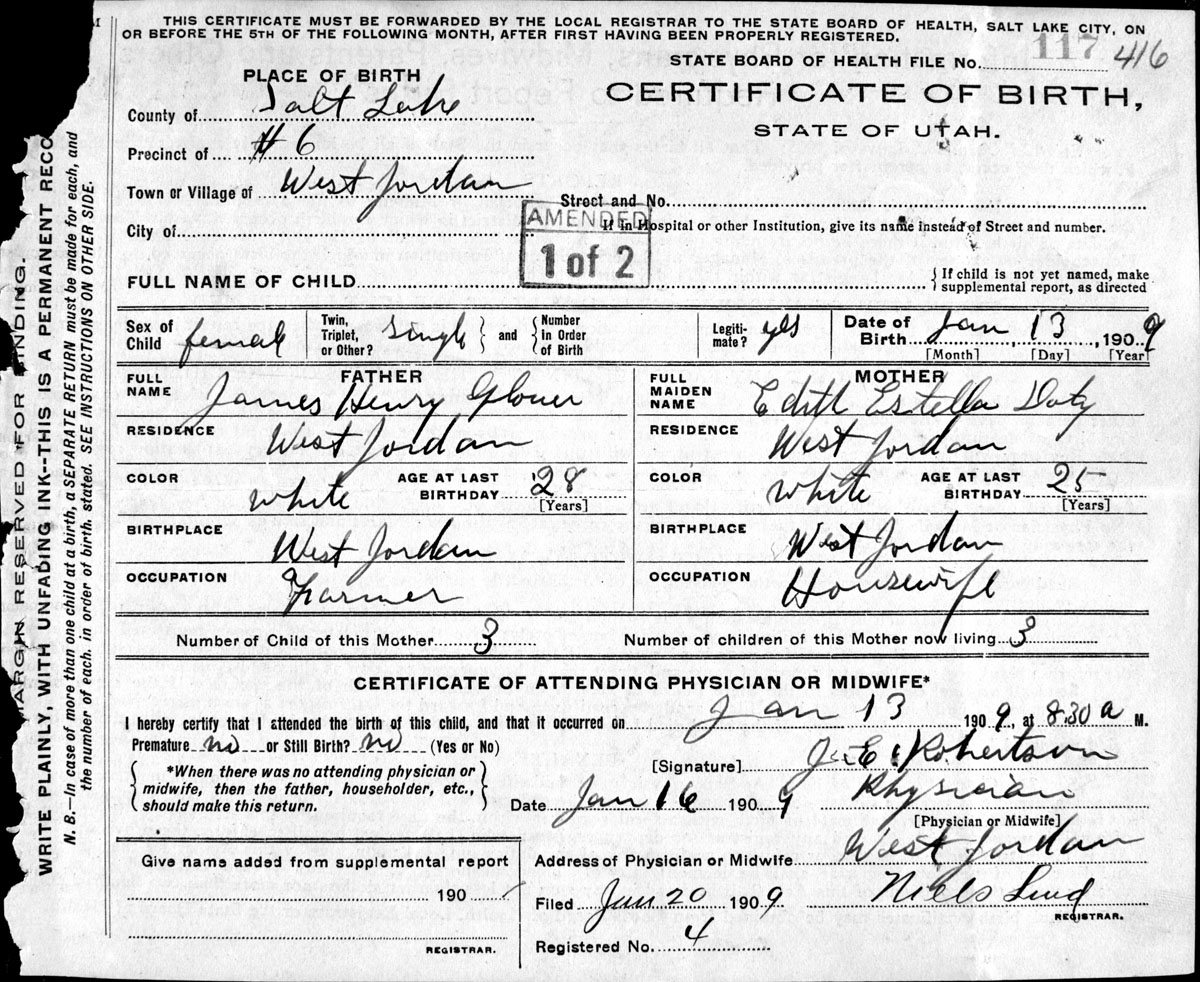 THIS CERTIFICATE MUST BE FORWARDED BY THE LOCAL REGISTRAR TO THE STATE BOARD OF HEALTH, SALT LAKE CITY, ON
OR BEFORE THE 5TH OF THE FOLLOWING MONTH, AFTER FIRST HAVING BEEN PROPERLY REGISTERED.
STATE BOARD OF HEALTH FILE No. 117 416
PLACE OF BIRTH
CERTIFICATE OF BIRTH,
STATE OF UTAH.
County of Salt Lake
Precinct of #6
Town or Village of West Jordan
Street and No.
City of
If in Hospital or other Institution, give its name instead of Street and number.
AMENDED
1 of 2
FULL NAME OF CHILD
{ If child is not yet named, make
supplemental report, as directed
Sex of Child female
Twin, Triplet, or Other? single } and { Number In Order of Birth
Legitimate? yes
Date of Birth Jan 13, 1909
[Month] [Day] [Year]
FATHER
FULL NAME James Henry Glover
RESIDENCE West Jordan
COLOR white AGE AT LAST BIRTHDAY 28 [Years]
BIRTHPLACE West Jordan
OCCUPATION Farmer
MOTHER
FULL MAIDEN NAME Edith Estella Doty
RESIDENCE West Jordan
COLOR white AGE AT LAST BIRTHDAY 25 [Years]
BIRTHPLACE West Jordan
OCCUPATION Housewife
Number of Child of this Mother 3 Number of children of this Mother now living 3
CERTIFICATE OF ATTENDING PHYSICIAN OR MIDWIFE*
I hereby certify that I attended the birth of this child, and that it occurred on Jan 13 1909, at 8.30 a M.
Premature no or Still Birth? no (Yes or No)
{ *When there was no attending physician or
midwife, then the father, householder, etc.,
should make this return. }
[Signature] J. E. Robertson
Date Jan 16 1909 Physician
[Physician or Midwife]
Give name added from supplemental report
190
REGISTRAR.
Address of Physician or Midwife West Jordan
Filed Jan 20 1909 Niels Lind
REGISTRAR.
Registered No. 4
MARGIN RESERVED FOR BINDING.
WRITE PLAINLY, WITH UNFADING INK--THIS IS A PERMANENT RECO
N. B.—In case of more than one child at a birth, a SEPARATE RETURN must be made for each, and
the number of each, in order of birth, stated. SEE INSTRUCTIONS ON OTHER SIDE.